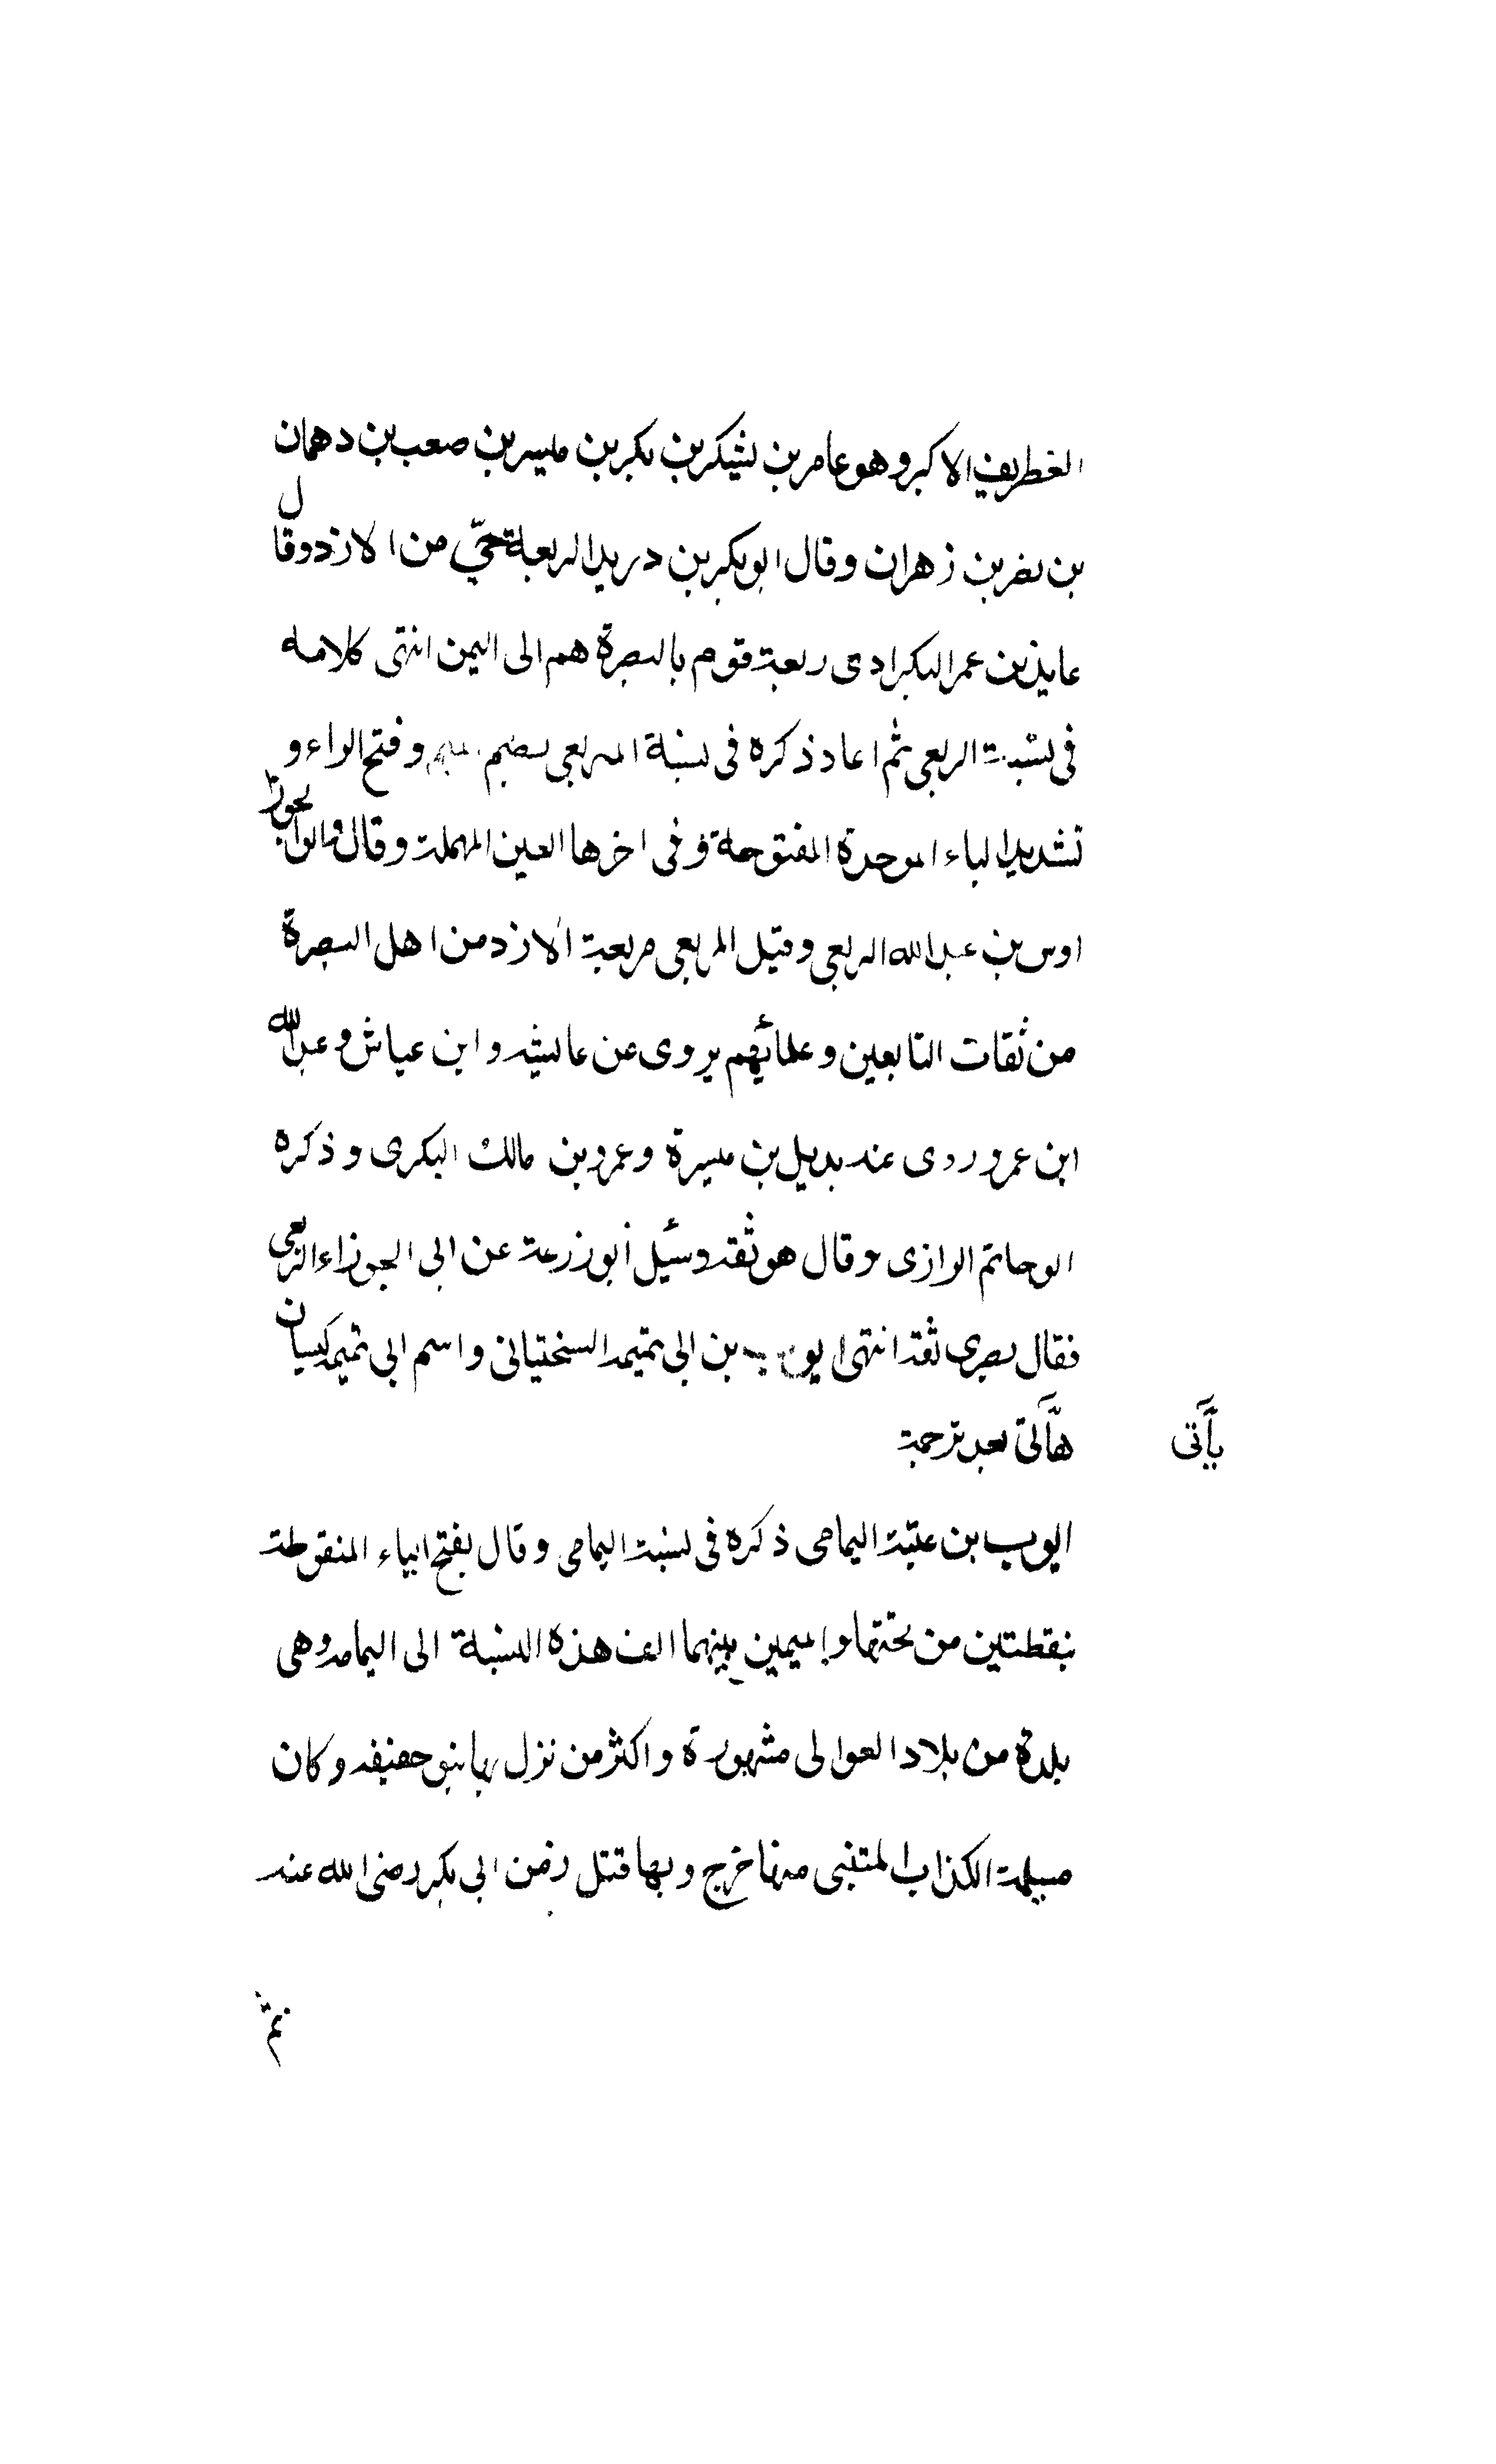 الغطريف الاكبر وهو عامر بن يشكر بن بكر بن ميسر بن صعب بن دهمان
بن نصر بن زهران وقال ابو بكر بن دريد الربعة حيّ من الازد وقال
عايذ بن عمر البكرادى ربعة قوم بالبصرة هم الى اليمن انتهى كلامه
فى نسبة الربعى ثم اعاد ذكره فى نسبة المربعى بضم الميم وفتح الراء و
تشديد الباء الموحدة المفتوحة و فى اخرها العين المهملة وقال
اوس بن عبد الله الربعى وقيل المربعى مربعة الازد من اهل البصرة
من ثقات التابعين وعلمائهم يروى عن عايشه و ابن عباش و عبد الله
ابن عمر وروى عنه بديل بن ميسرة وعمرو بن مالك البكرى وذكره
ابو حاتم الرازى وقال هو ثقه وسئيل أبو زرعة عن ابى الجوزاء الربعى
فقال بصرى ثقة انتهى ايوب بن ابى تميمه السختيانى واسم ابى تميمه كيسان
بعد ترجمة
يأتى
ايوب بن عتبة اليمامى ذكره فى نسبة اليمامى وقال بفتح الياء المنقوطة
بنقطتين من تحتها و الميمين بينهما الف هذه النسبة الى اليمامه وهى
بلدة من بلاد العوالى مشهورة واكثر من نزل بها بنو حنيفه وكان
مسيلمة الكذاب المتنبى منها خرج وبها قتل زمن ابى بكر رضى الله عنه
ثم